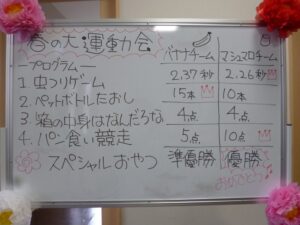 春の大運動会
バナナチーム マシュマロチーム
―プログラム―
1. 虫つりゲーム 2.37秒 2.26秒
2. ペットボトルたおし 15本 10本
3. 箱の中身はなんだろな 4点 4点
4. パン食い競走 5点 10点
スペシャルおやつ 準優勝 優勝
おめでとう